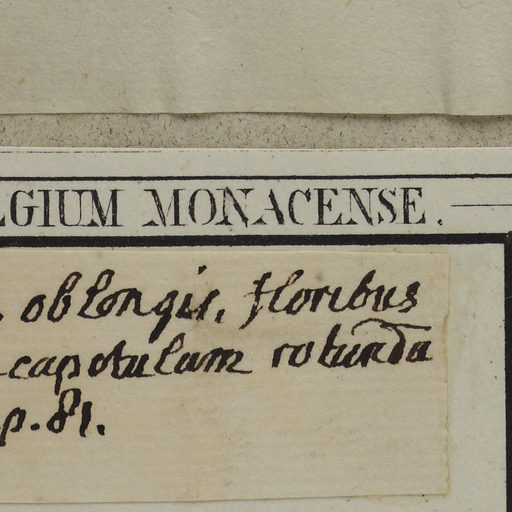 LGIUM MONACENSE.
oblongis, floribus
capitulum rotunda
p. 81.